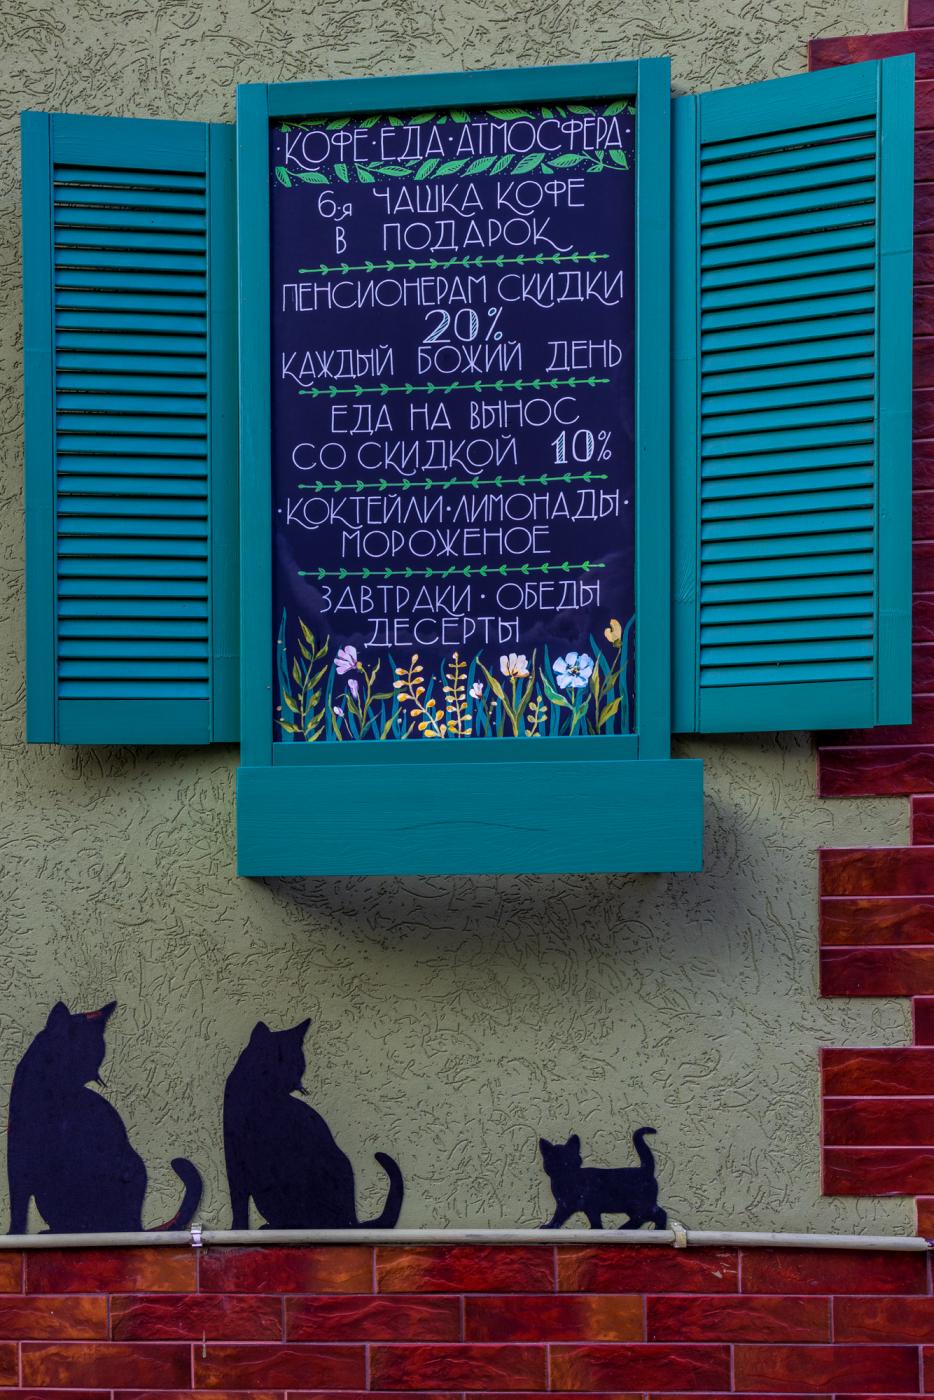 ·КОФЕ·ЕДА·АТМОСФЕРА·
6-я ЧАШКА КОФЕ
В ПОДАРОК
ПЕНСИОНЕРАМ СКИДКИ
20%
КАЖДЫЙ БОЖИЙ ДЕНЬ
ЕДА НА ВЫНОС
СО СКИДКОЙ 10%
·КОКТЕЙЛИ·ЛИМОНАДЫ·
МОРОЖЕНОЕ
ЗАВТРАКИ· ОБЕДЫ
ДЕСЕРТЫ